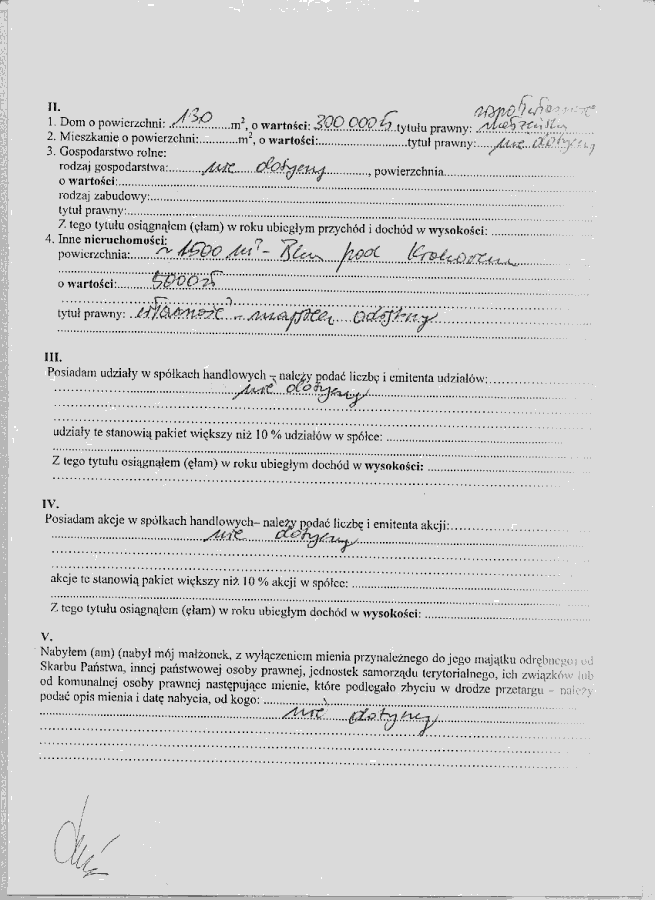 II.
1. Dom o powierzchni: 130 m², o wartości: 300 000 zł tytułu prawny: współwłasność
małżeńska
2. Mieszkanie o powierzchni: m², o wartości: tytuł prawny: nie dotyczy
3. Gospodarstwo rolne:
rodzaj gospodarstwa: nie dotyczy, powierzchnia
o wartości:
rodzaj zabudowy:
tytuł prawny:
Z tego tytułu osiągnąłem (ęłam) w roku ubiegłym przychód i dochód w wysokości:
4. Inne nieruchomości:
powierzchnia: ~ 1500 m² - pod
o wartości: 5000 zł
tytuł prawny: własność - majątek odrębny
III.
Posiadam udziały w spółkach handlowych – należy podać liczbę i emitenta udziałów:
nie dotyczy
udziały te stanowią pakiet większy niż 10 % udziałów w spółce:
Z tego tytułu osiągnąłem (ęłam) w roku ubiegłym dochód w wysokości:
IV.
Posiadam akcje w spółkach handlowych– należy podać liczbę i emitenta akcji:
nie dotyczy
akcje te stanowią pakiet większy niż 10 % akcji w spółce:
Z tego tytułu osiągnąłem (ęłam) w roku ubiegłym dochód w wysokości:
V.
Nabyłem (am) (nabył mój małżonek, z wyłączeniem mienia przynależnego do jego majątku odrębnego) od
Skarbu Państwa, innej państwowej osoby prawnej, jednostek samorządu terytorialnego, ich związków lub
od komunalnej osoby prawnej następujące mienie, które podlegało zbyciu w drodze przetargu – należy
podać opis mienia i datę nabycia, od kogo:
nie dotyczy